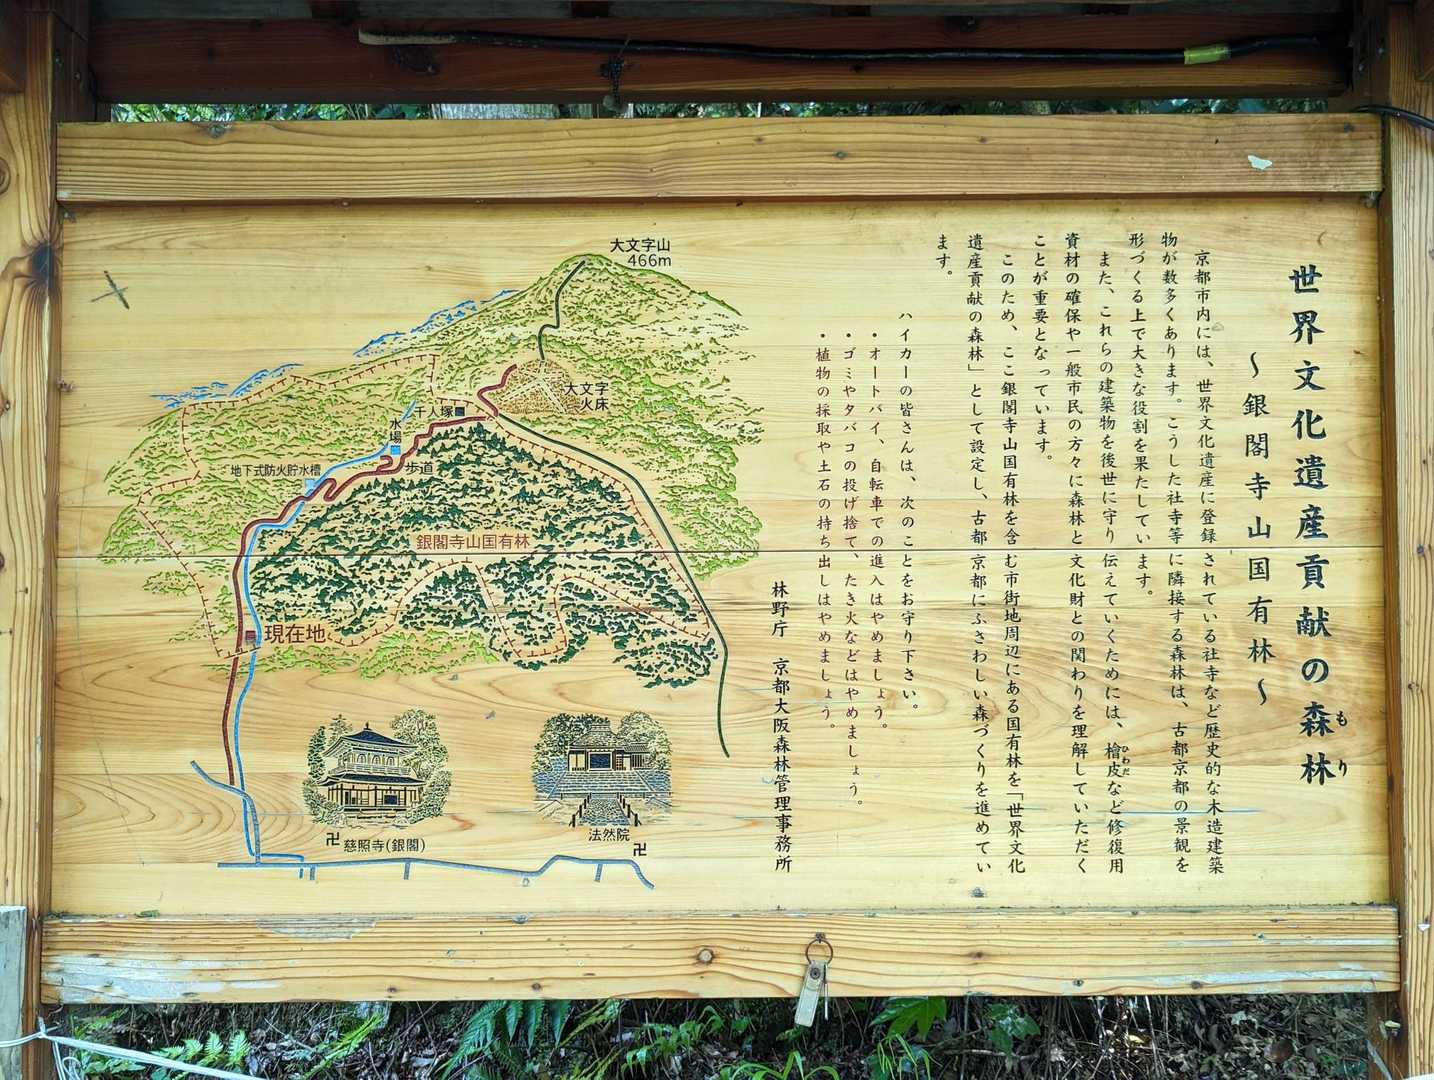 世界文化遺産貢献の森林
もり
～銀閣寺山国有林～
京都市内には、世界文化遺産に登録されている社寺など歴史的な木造建築
物が数多くあります。こうした社寺等に隣接する森林は、古都京都の景観を
形づくる上で大きな役割を果たしています。
また、これらの建築物を後世に守り伝えていくためには、檜皮など修復用
ひわだ
資材の確保や一般市民の方々に森林と文化財との関わりを理解していただく
ことが重要となっています。
このため、ここ銀閣寺山国有林を含む市街地周辺にある国有林を「世界文化
遺産貢献の森林」として設定し、古都京都にふさわしい森づくりを進めてい
ます。
ハイカーの皆さんは、次のことをお守り下さい。
・オートバイ、自転車での進入はやめましょう。
・ゴミやタバコの投げ捨て、たき火などはやめましょう。
・植物の採取や土石の持ち出しはやめましょう。
林野庁 京都大阪森林管理事務所
大文字山
466m
大文字
火床
千人塚
水場
歩道
地下式防火貯水槽
銀閣寺山国有林
現在地
卍 慈照寺(銀閣)
法然院
卍